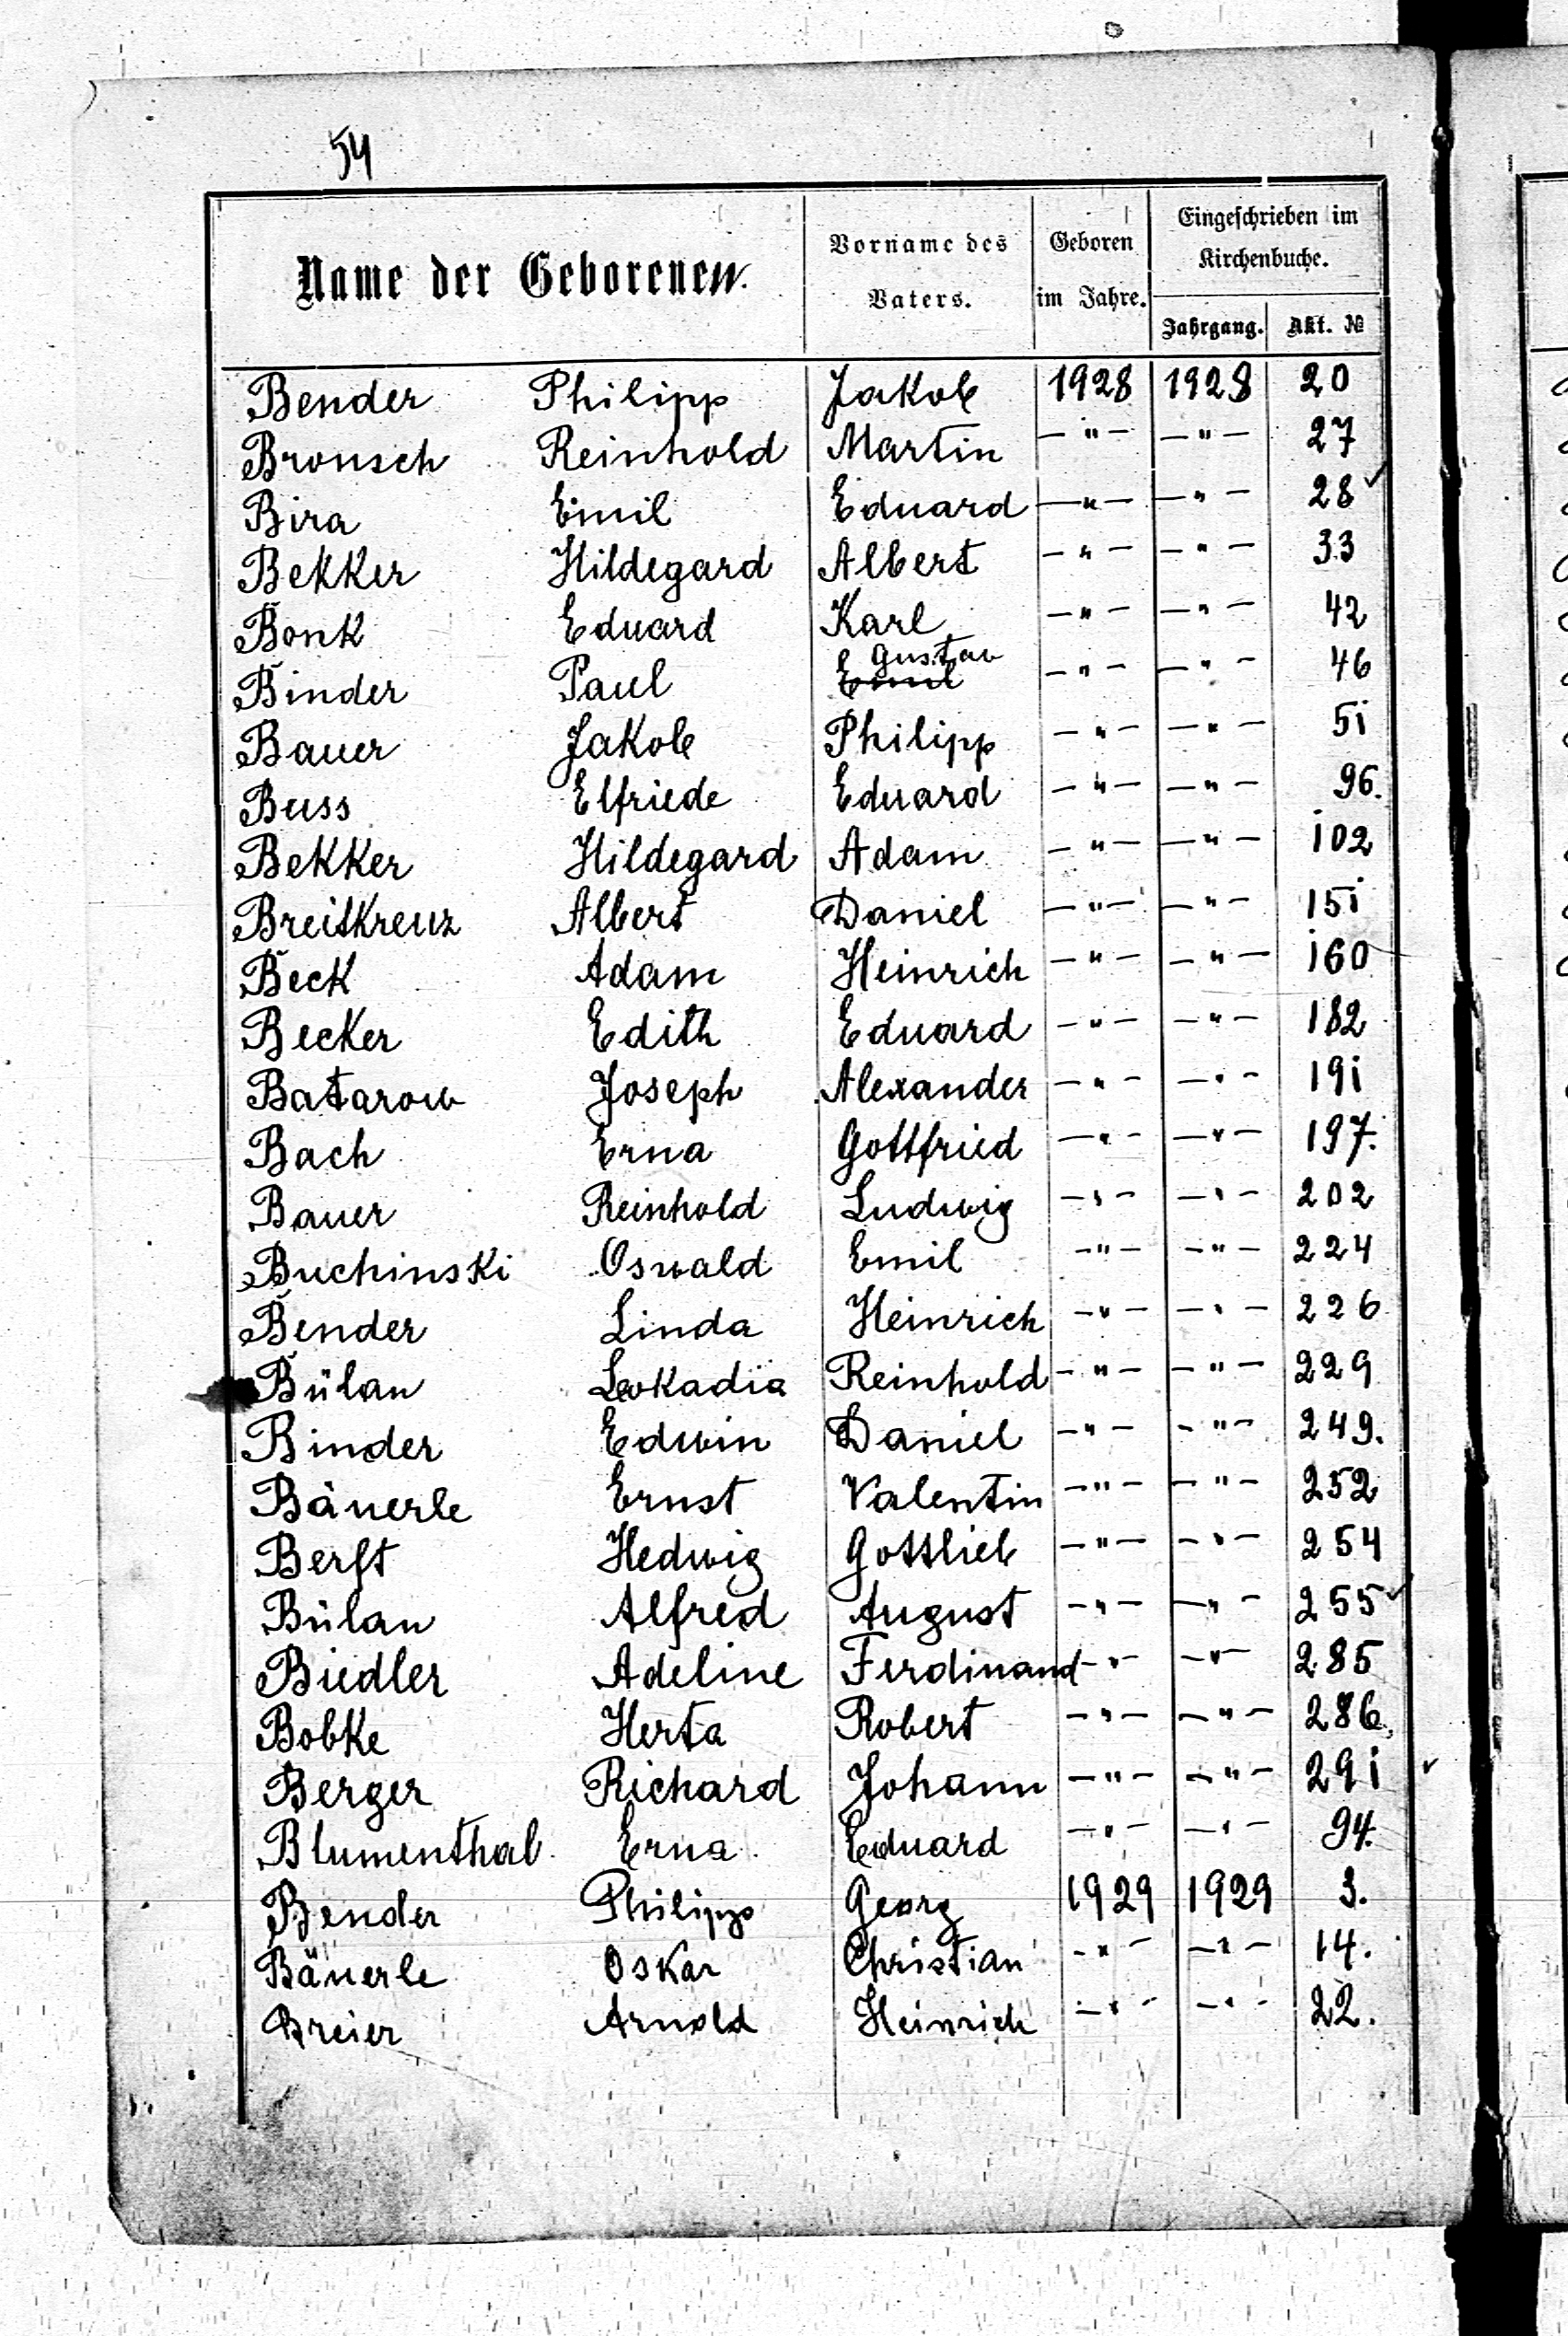 54
Name der Geborenen.
Vorname des Vaters.
Geboren im Jahre.
Eingeschrieben im Kirchenbuche.
Jahrgang. Akt. №
Bender Philipp Jakob 1928 1928 20
Bronsch Reinhold Martin —"— —"— 27
Bira Emil Eduard —"— —"— 28 ✓
Bekker Hildegard Albert —"— —"— 33
Bonk Eduard Karl —"— —"— 42
Binder Paul Emil Gustav —"— —"— 46
Bauer Jakob Philipp —"— —"— 51
Buss Elfriede Eduard —"— —"— 96.
Bekker Hildegard Adam —"— —"— 102
Breitkreuz Albert Daniel —"— —"— 151
Beck Adam Heinrich —"— —"— 160
Becker Edith Eduard —"— —"— 182
Batarow Joseph Alexander —"— —"— 191
Bach Erna Gottfried —"— —"— 197.
Bauer Reinhold Ludwig —"— —"— 202
Buchinski Oswald Emil —"— —"— 224
Bender Linda Heinrich —"— —"— 226
Bülau Leokadia Reinhold —"— —"— 229
Binder Edwin Daniel —"— —"— 249.
Bäuerle Ernst Valentin —"— —"— 252
Berft Hedwig Gottlieb —"— —"— 254
Bülau Alfred August —"— —"— 255 ✓
Biedler Adeline Ferdinand —"— —"— 285
Bobke Herta Robert —"— —"— 286.
Berger Richard Johann —"— —"— 291 ✓
Blumenthal Erna Eduard —"— —"— 94.
Bender Philipp Georg 1929 1929 3.
Bäuerle Oskar Christian —"— —"— 14.
Breier Arnold Heinrich —"— —"— 22.